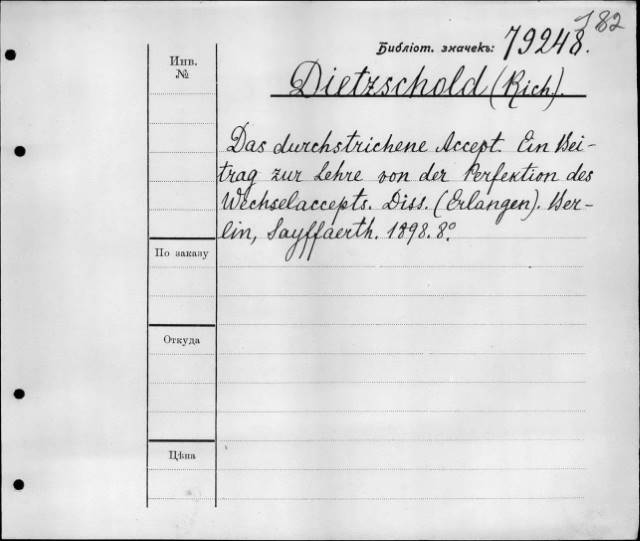 182
Библіот. значекъ: 79248.
Инв.
№
Dietzschold (Rich).
Das durchstrichene Accept. Ein Bei-
trag zur Lehre von der Perfektion des
Wechselaccepts. Diss. (Erlangen). Ber-
lin, Sayffaerth. 1898. 8°.
По заказу
Откуда
Цѣна